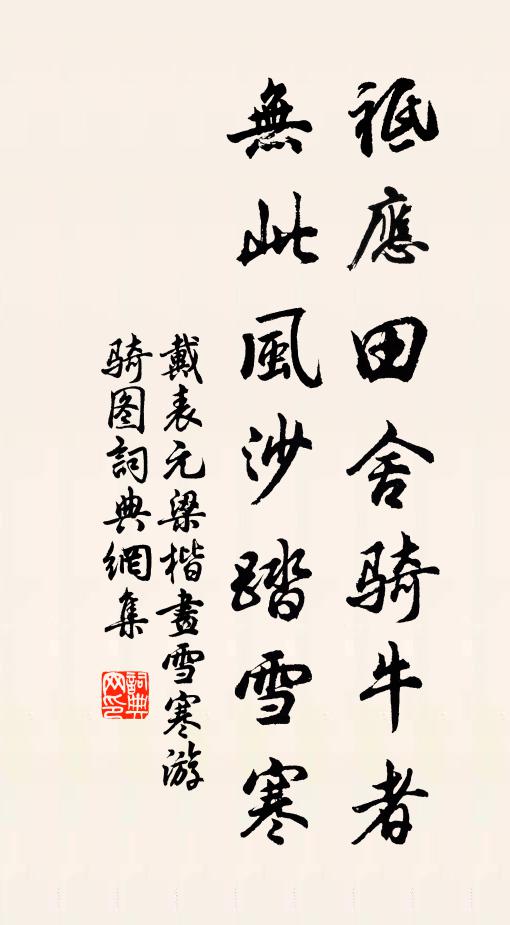 祗應田舍骑牛者
無此風沙踏雪寒
戴表元梁楷畫雪寒游
骑图詞典網集
詞典
网印